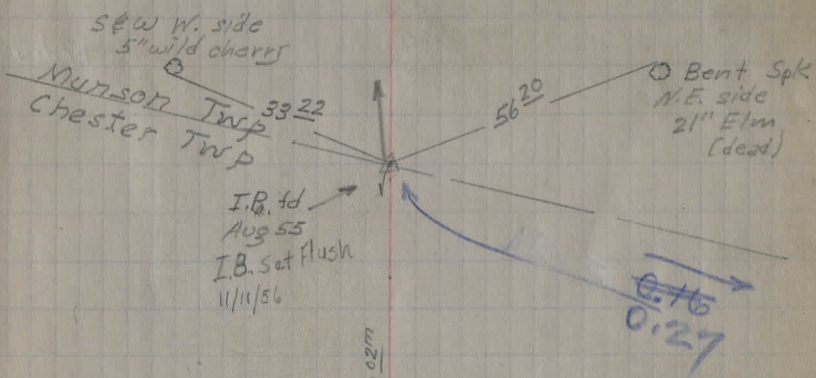 S&W W. side
5" wild cherry
Munson Twp
Chester Twp
33 22
56 20
Bent Spk
N.E. side
21" Elm
(dead)
I.B. fd
Aug 55
I.B. Set Flush
11/11/56
0.16
0.27
02m